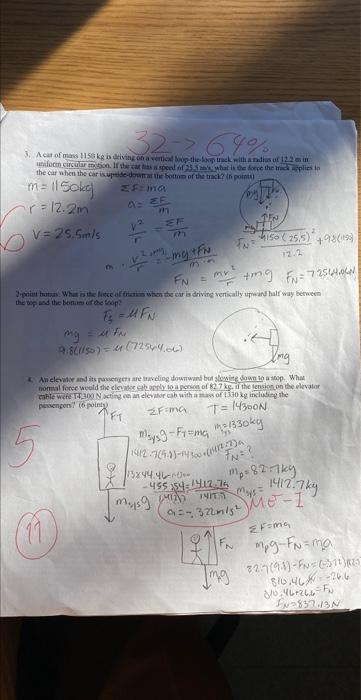 32 → 64%
3. A car of mass 1150 kg is driving on a vertical loop-the-loop track with a radius of 12.2 m in
uniform circular motion. If the car has a speed of 25.5 m/s, what is the force the track applies to
the car when the car is upside-down at the bottom of the track? (6 points)
m = 1150kg
r = 12.2m
V = 25.5m/s
ΣF = ma
a = ΣF/m
v²/r = ΣF/m
-mg + FN
mg
FN
FN = 1150(25.5)²/12.2 + 9.8(1150)
FN = mv²/r + mg
FN = 72564.06N
2-point bonus: What is the force of friction when the car is driving vertically upward half way between
the top and the bottom of the loop?
= μFN
mg = μFN
9.8(1150) = μ(72564.06)
mg
4. An elevator and its passengers are traveling downward but slowing down to a stop. What
normal force would the elevator cab apply to a person of 82.7 kg, if the tension on the elevator
cable were 14,300 N acting on an elevator cab with a mass of 1330 kg including the
passengers? (6 points)
5
FT
ΣF=ma
T = 14300N
msysg - FT = ma
m=1330kg
FN = ?
mp = 82.7kg
msys = 1412.7kg
msysg
a = -.32m/s²
ME-1
11
ΣF = ma
FN
mpg - FN = ma
mg
810.46 + 26.6 = FN
FN = 837.13N